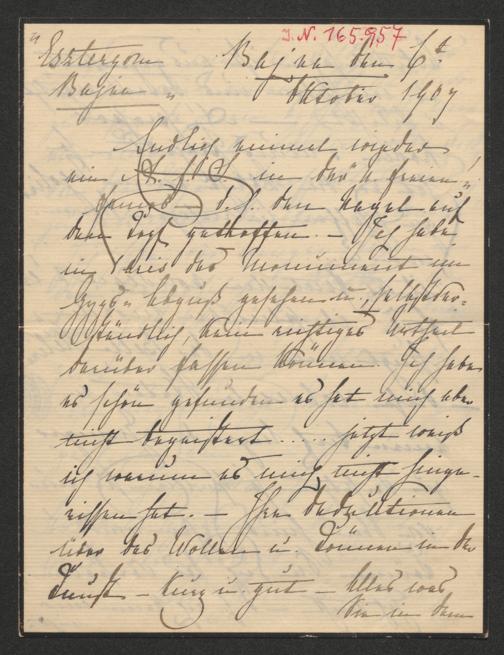 J.N. 165.957
"Esztergom Bajna den 6t
Bajna" Oktober 1907
Endlich einmal wieder
ein A. F. S. in der "N. Freien"!
Famos – d. h. den Nagel auf
den Kopf getroffen. – Ich habe
in Paris das Monument im
Gyps-Abguß gesehen u. selbstver-
ständlich kein richtiges Urtheil
darüber fassen können. Ich habe
es schön gefunden es hat mich aber
nicht begeistert .... jetzt weiß
ich warum es mich nicht hinge-
rissen hat. – Ihre Deduktionen
über das Wollen u. Können in der
Kunst – kurz u. gut – Alles was
Sie in dem